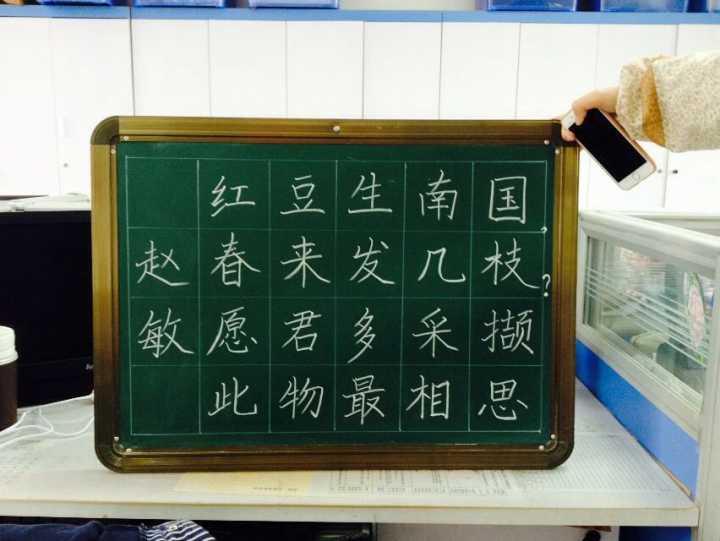 红豆生南国,
赵春来发几枝?
敏愿君多采撷
此物最相思